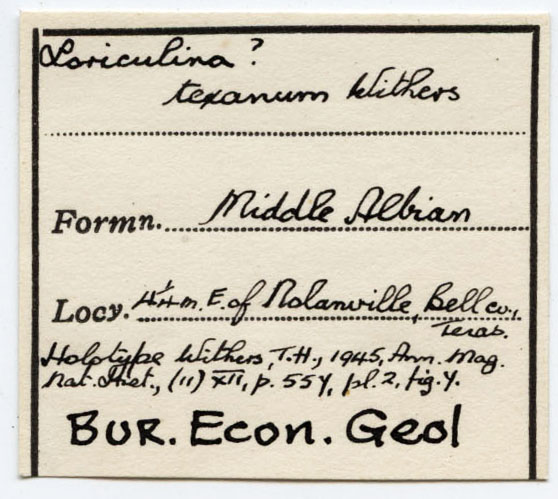 Loriculina?
texanum Withers
Formn. Middle Albian
Locy. 4¼m. E. of Nolanville, Bell co.,
Texas.
Holotype Withers, T.H., 1945, Ann. Mag.
Nat. Hist., (11) XII, p. 557, pl. 2, fig. 7.
BUR. ECON. GEOl